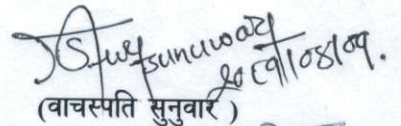 sunuwar
२०६९/०४/०१.
(वाचस्पति सुनुवार)